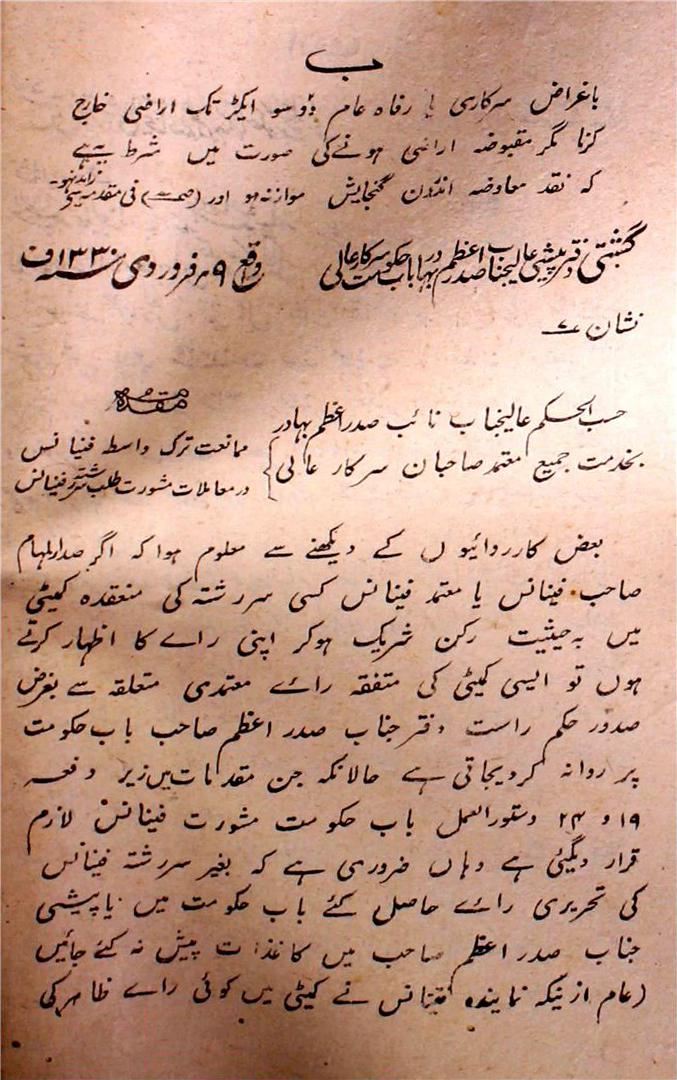 ب
باغراض سرکاری یا رفاہ عام دو سو ایکڑ تک اراضی خارج
کرنا مگر مقبوضہ اراضی ہونے کی صورت میں شرط یہ ہے
کہ نقد معاوضہ اندرون گنجایش موازنہ ہو اور فی مقدمہ زائد نہو۔
گشتی دفتر پیشی عالیجناب صدر اعظم بہادر باب حکومت سرکار عالی واقع ۹؍ فروردی ۱۳۳۰ف
نشان ۷
مقدمہ
حسب الحکم عالیجناب نائب صدر اعظم بہادر
بخدمت جمیع معتمد صاحبان سرکار عالی
ممانعت ترک واسطہ فینانس
در معاملات مشورت طلب سررشتہ فینانس
بعض کارروائیوں کے دیکھنے سے معلوم ہوا کہ اگر صدارلمہام
صاحب فینانس یا معتمد فینانس کسی سررشتہ کی منعقدہ کمیٹی
میں بہ حیثیت رکن شریک ہوکر اپنی رائے کا اظہار کرتے
ہوں تو ایسی کمیٹی کی متفقہ رائے معتمدی متعلقہ سے بغرض
صدور حکم راست دفتر جناب صدر اعظم صاحب باب حکومت
پر روانہ کردیجاتی ہے حالانکہ جن مقدمات میں زیر دفعہ
۱۹ و ۲۴ دستورالعمل باب حکومت مشورت فینانس لازم
قرار دیگئی ہے وہاں ضروری ہے کہ بغیر سررشتہ فینانس
کی تحریری رائے حاصل کئے باب حکومت میں یا پیشی
جناب صدر اعظم صاحب میں کاغذات پیش نہ کئے جائیں
(عام ازینکہ نمایندہ فینانس نے کمیٹی میں کوئی رائے ظاہر کی